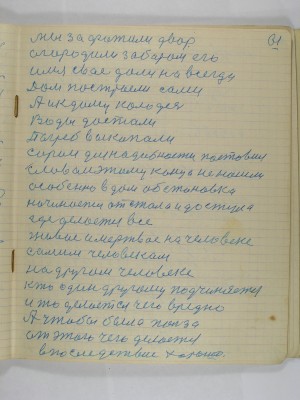 61
мы задружили двор
огородили забаром его
имя свае дали на всегду
Дом построили сами
А к идому колодея
Воды достали
Погреб выкапали
сараи для надобности поставили
словом этому конца не нашли
особено в дом обстановка
начинается от стола и до стула
где делается все
живое и мертвое на человеке
самим человеком
на другом человеке
кто один другому подчиняется
и то делается чего вредно
А чтобы была полза
от этого чего делается
в последствие хорошо.